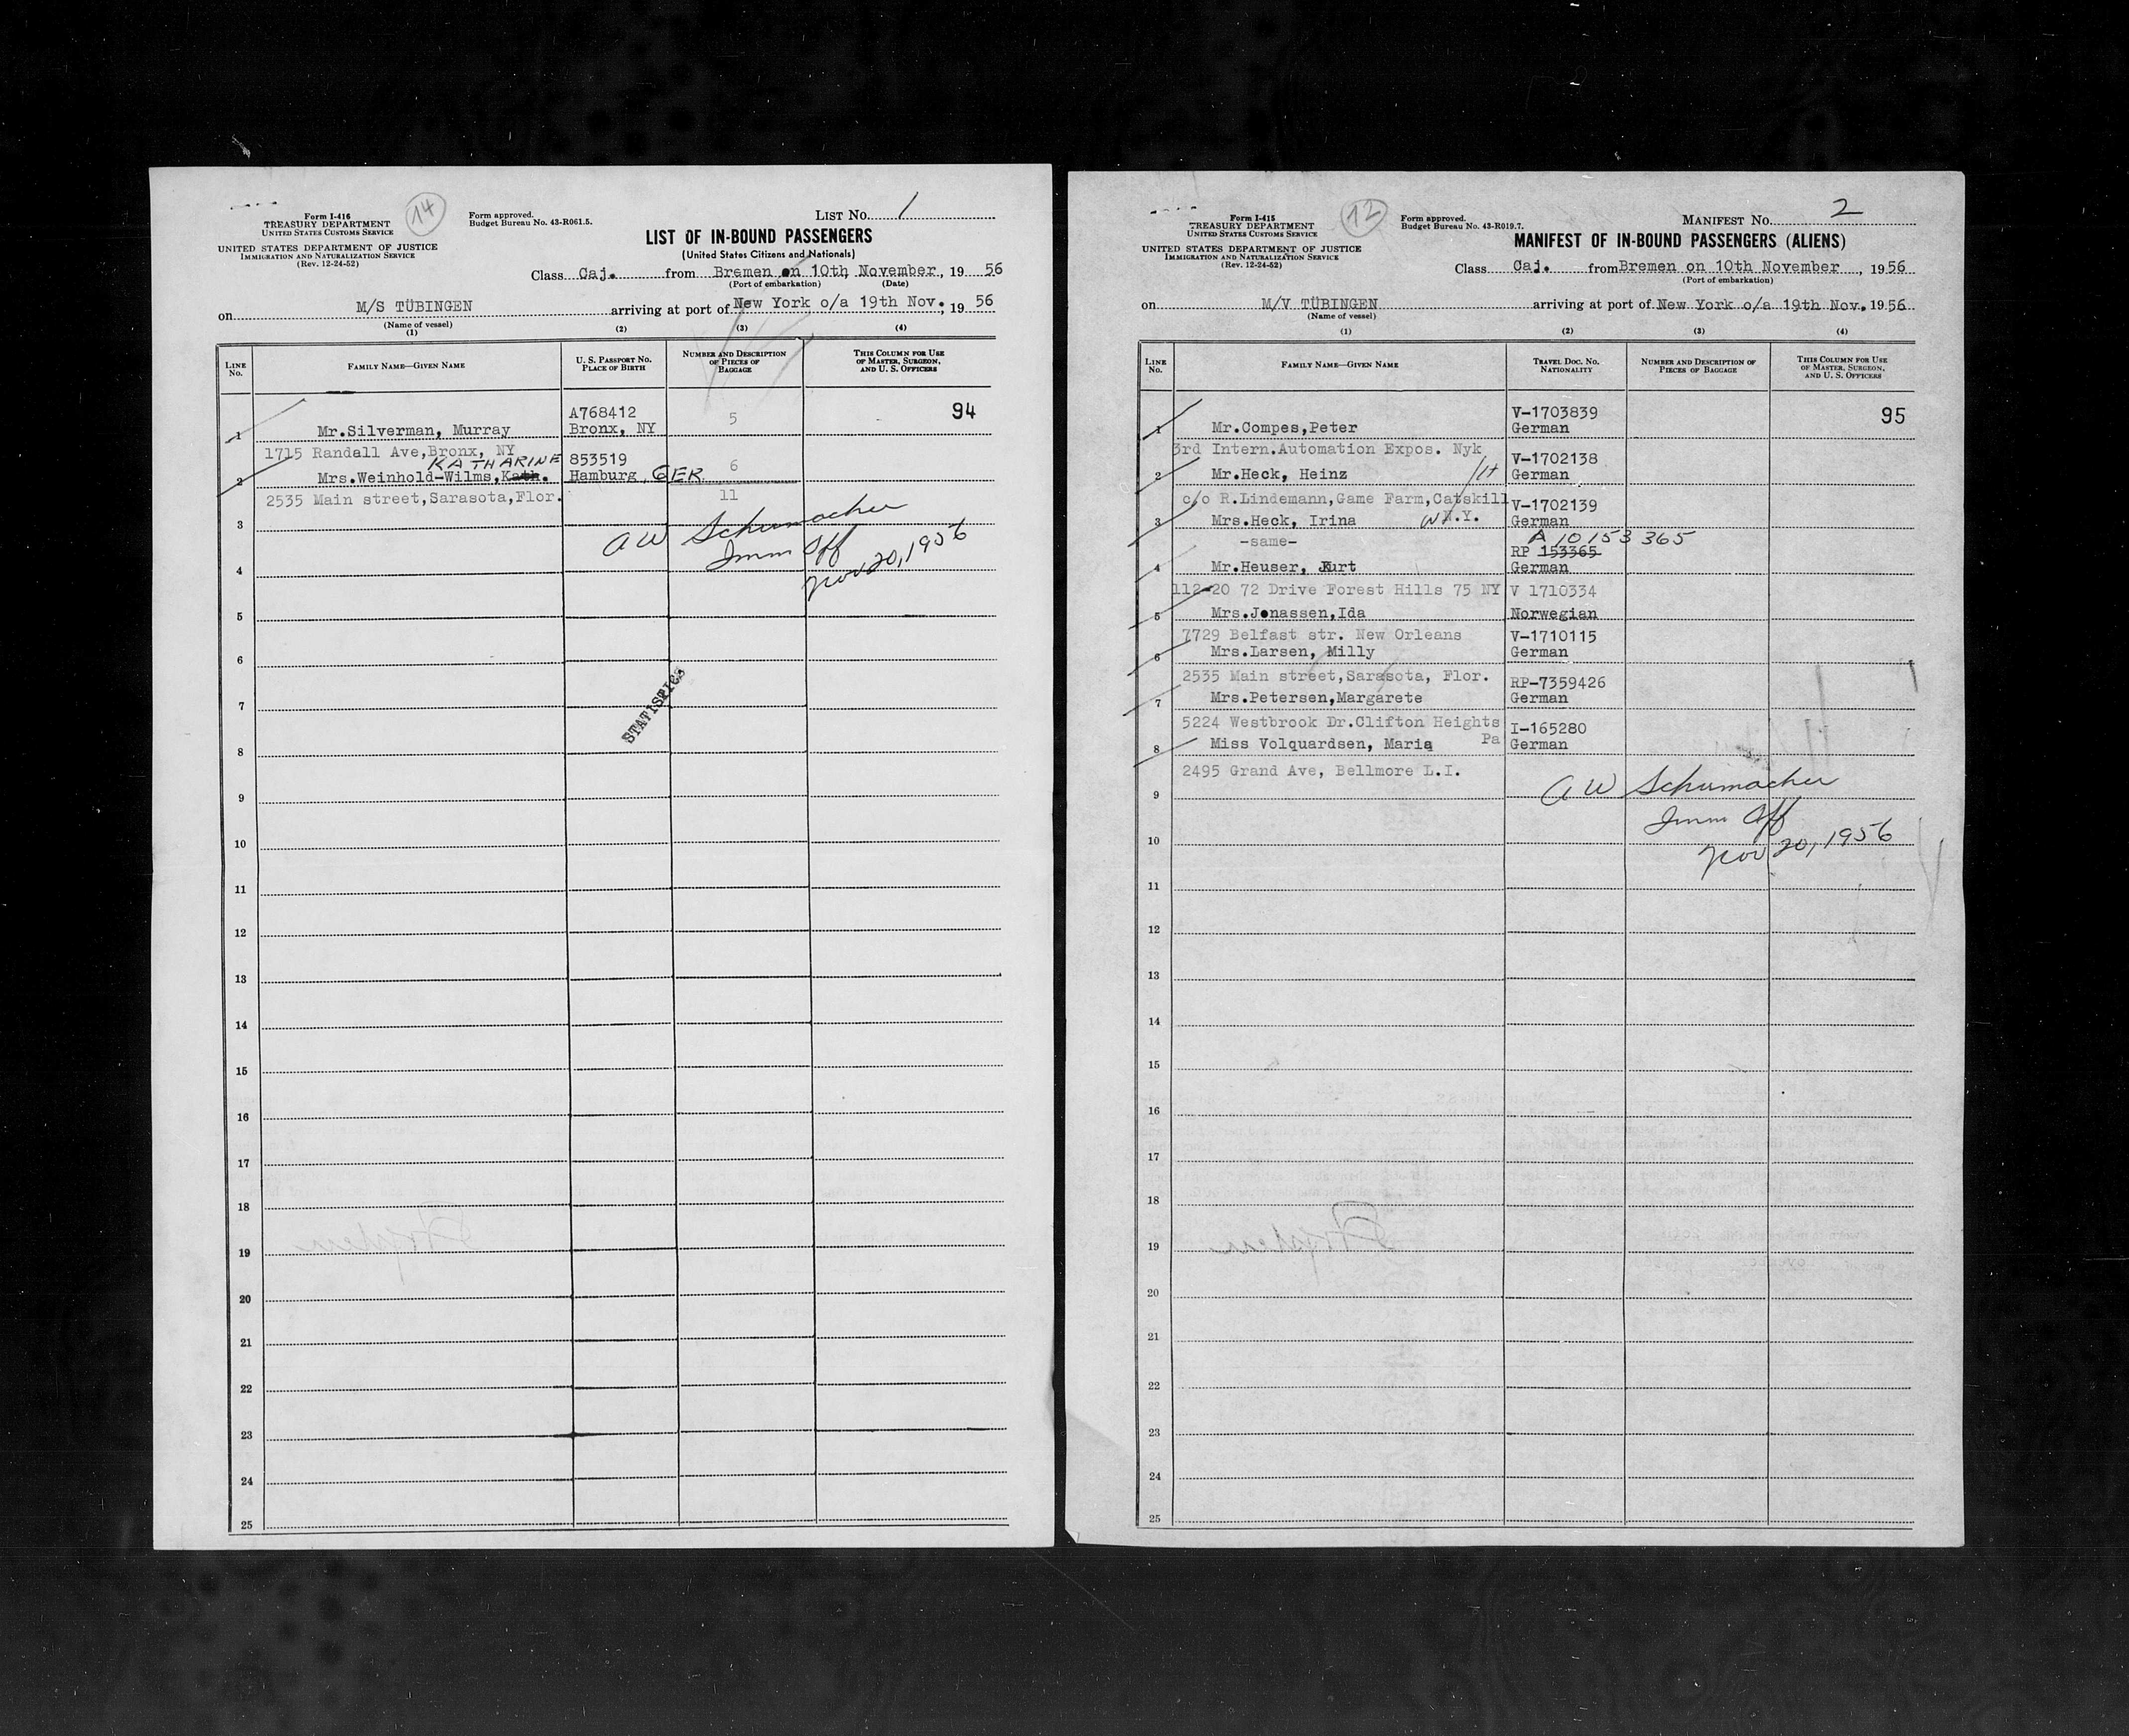 Form I-416
TREASURY DEPARTMENT
UNITED STATES CUSTOMS SERVICE
14
Form approved.
Budget Bureau No. 43-R061.5.
LIST No. 1
UNITED STATES DEPARTMENT OF JUSTICE
IMMIGRATION AND NATURALIZATION SERVICE
(Rev. 12-24-52)
LIST OF IN-BOUND PASSENGERS
(United States Citizens and Nationals)
Class Caj. from Bremen on 10th November, 19 56
(Port of embarkation) (Date)
on M/S TÜBINGEN arriving at port of New York o/a 19th Nov., 19 56
(Name of vessel)
(1) (2) (3) (4)
LINE No. FAMILY NAME—GIVEN NAME U. S. PASSPORT NO. PLACE OF BIRTH NUMBER AND DESCRIPTION OF PIECES OF BAGGAGE THIS COLUMN FOR USE OF MASTER, SURGEON, AND U. S. OFFICERS
A768412 94
1 Mr.Silverman, Murray Bronx, NY 5
1715 Randall Ave,Bronx, NY
KATHARINE 853519
2 Mrs.Weinhold-Wilms,Kath. Hamburg, GER. 6
2535 Main street,Sarasota,Flor. 11
3
A W Schumacher
Imm Off
4
Nov 20, 1956
5
6
STATISTICS
7
8
9
10
11
12
13
14
15
16
17
18
19
20
21
22
23
24
25
Form I-415
TREASURY DEPARTMENT
UNITED STATES CUSTOMS SERVICE
12
Form approved.
Budget Bureau No. 43-R019.7.
MANIFEST No. 2
UNITED STATES DEPARTMENT OF JUSTICE
IMMIGRATION AND NATURALIZATION SERVICE
(Rev. 12-24-52)
MANIFEST OF IN-BOUND PASSENGERS (ALIENS)
Class Caj. from Bremen on 10th November, 1956
(Port of embarkation)
on M/V TÜBINGEN arriving at port of New York o/a 19th Nov. 1956
(Name of vessel)
(1) (2) (3) (4)
LINE No. FAMILY NAME—GIVEN NAME TRAVEL DOC. NO. NATIONALITY NUMBER AND DESCRIPTION OF PIECES OF BAGGAGE THIS COLUMN FOR USE OF MASTER, SURGEON, AND U. S. OFFICERS
V-1703839 95
1 Mr.Compes,Peter German
3rd Intern.Automation Expos. Nyk
V-1702138
2 Mr.Heck, Heinz H German
c/o R.Lindemann,Game Farm,Catskill
V-1702139
3 Mrs.Heck, Irina W N.Y. German
-same- A 10 153 365
RP 153365
4 Mr.Heuser, Kurt German
112-20 72 Drive Forest Hills 75 NY V 1710334
5 Mrs.Jonassen,Ida Norwegian
7729 Belfast str. New Orleans V-1710115
6 Mrs.Larsen, Milly German
2535 Main street,Sarasota, Flor. RP-7359426
7 Mrs.Petersen,Margarete German
5224 Westbrook Dr.Clifton Heights Pa I-165280
8 Miss Volquardsen, Maria German
2495 Grand Ave, Bellmore L.I.
9
A W Schumacher
Imm Off
10
Nov 20, 1956
11
12
13
14
15
16
17
18
19
20
21
22
23
24
25